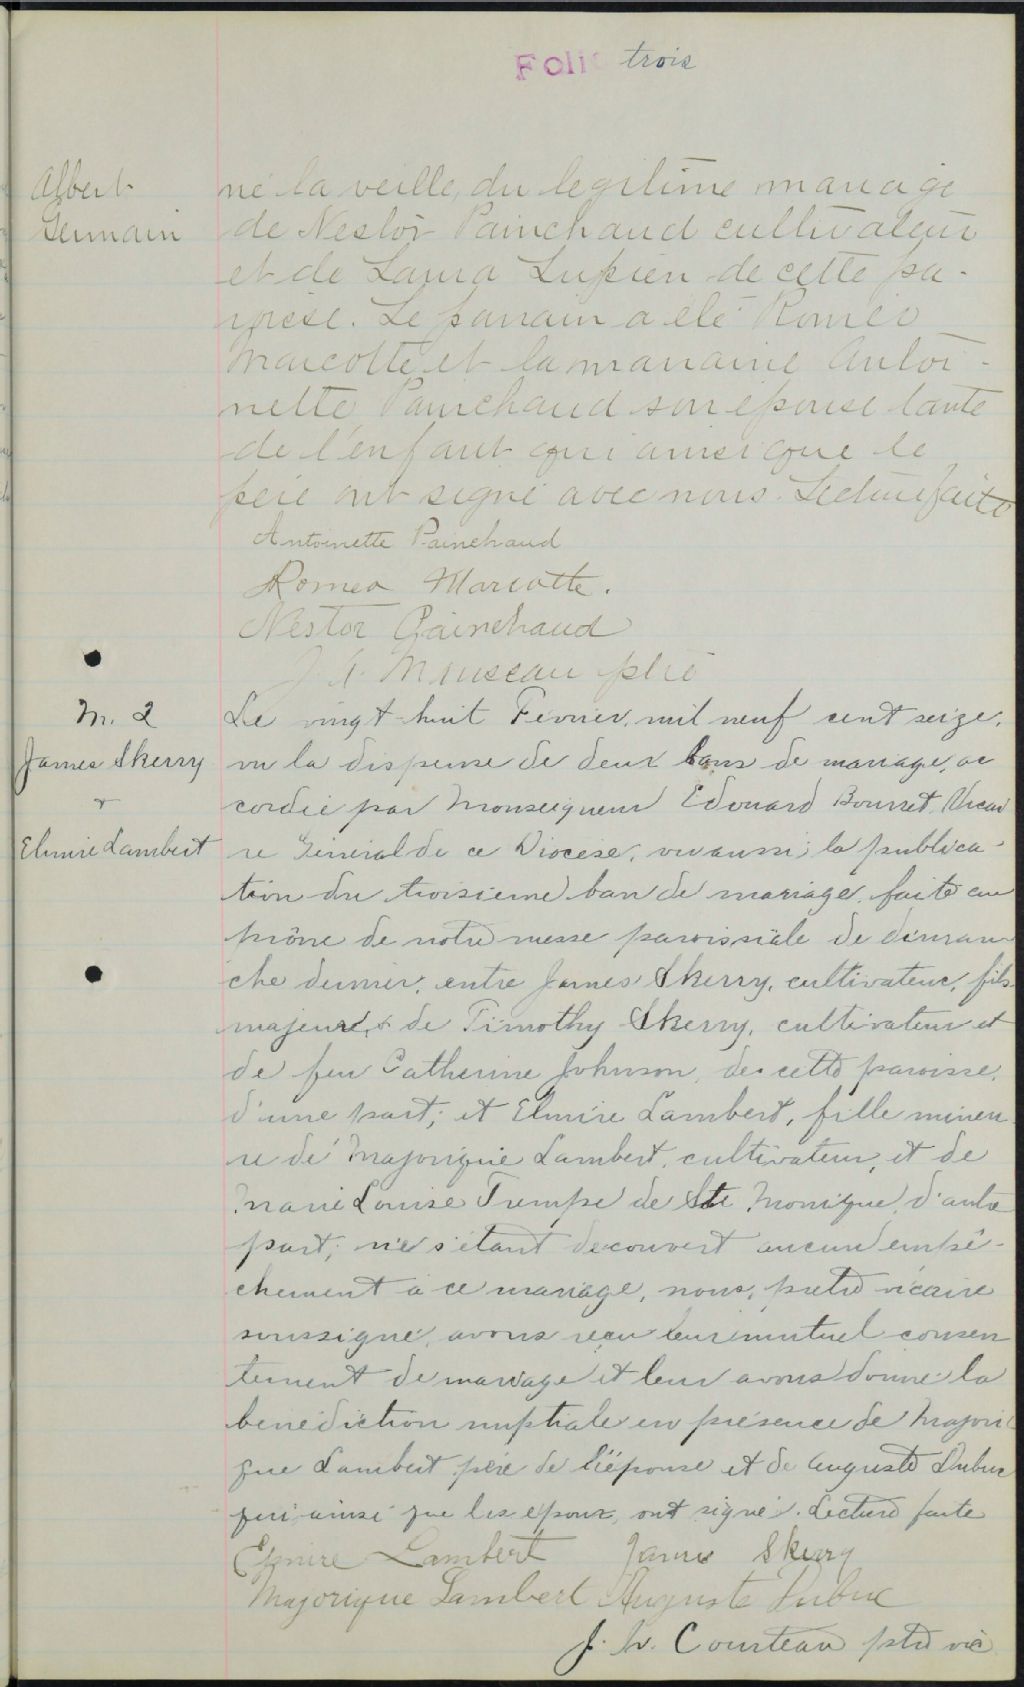 Folio trois
Albert
Germain
né la veille, du legitime mariage
de Nestor Painchaud cultivateur
et de Laura Lupien de cette pa-
roisse. Le parrain a été Romeo
Marcotte et la marraine Antoi-
nette Painchaud son épouse tante
de l'enfant qui ainsi que le
père ont signé avec nous. Lecture faite
Antoinette Painchaud
Romeo Marcotte.
Nestor Painchaud
J. A. Manseau ptre
M. 2
James Skerry
&
Elmire Lambert
Le vingt-huit Février, mil neuf cent seize,
vu la dispense de deux bans de mariage, ac
cordée par Monseigneur Edouard Bourret, Vicai
re Général de ce Diocèse, vu aussi, la publica-
tion du troisième ban de mariage, faite au
prône de notre messe paroissiale de diman
che dernier, entre James Skerry, cultivateur, fils
majeur, & de Timothy Skerry, cultivateur et
de feu Catherine Johnson, de cette paroisse,
d'une part; et Elmire Lambert, fille mineu
re de Majorique Lambert, cultivateur, et de
Marie Louise Trempe de Ste Monique, d'autre
part; ne s'étant découvert aucun empê-
chement à ce mariage, nous, prêtre vicaire
soussigné, avons reçu leur mutuel consen
tement de mariage et leur avons donné la
bénédiction nuptiale en présence de Majori
que Lambert père de l'épouse et de Auguste Dubuc
qui, ainsi que les époux, ont signé. Lecture faite
Elmire Lambert James Skerry
Majorique Lambert Auguste Dubuc
J. h. Courteau ptre vic